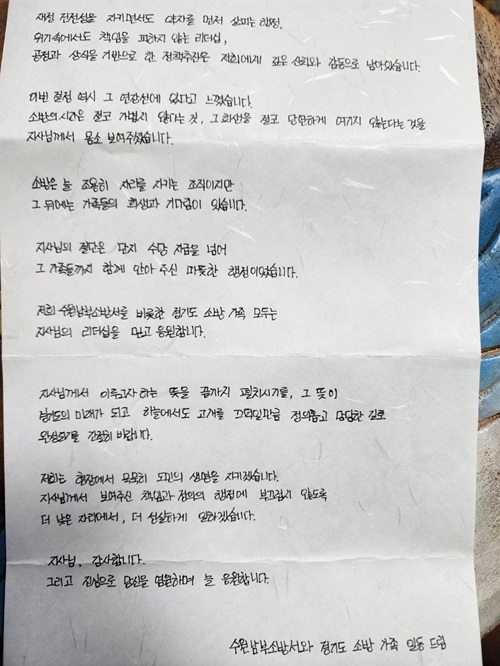 재정 건전성을 지키면서도 약자를 먼저 살피는 행정,
위기속에서도 책임을 피하지 않는 리더십,
공정과 상식을 기반으로 한 정책추진은 저희에게 깊은 신뢰와 감동으로 남아있습니다.
이번 결정 역시 그 연장선에 있다고 느꼈습니다.
소방의 시간은 결코 가볍지 않다는 것, 그 희생을 결코 당연하게 여기지 않는다는 것을
지사님께서 몸소 보여주셨습니다.
소방은 늘 조용히 자리를 지키는 조직이지만
그 뒤에는 가족들의 희생과 기다림이 있습니다.
지사님의 결단은 단지 수당 지급을 넘어
그 가족들까지 함께 안아 주신 따뜻한 행정이었습니다.
저희 수원남부소방서를 비롯한 경기도 소방 가족 모두는
지사님의 리더십을 믿고 응원합니다.
지사님께서 이루고자 하는 뜻을 끝까지 펼치시기를, 그 뜻이
미래가 되고 하늘에서도 고개를 끄덕일만큼 정의롭고 당당한 길로
완성되기를 간절히 바랍니다.
저희는 현장에서 묵묵히 도민의 생명을 지키겠습니다.
지사님께서 보여주신 책임과 정의의 행정에 부끄럽지 않도록
더 낮은 자리에서, 더 성실하게 일하겠습니다.
지사님, 감사합니다.
그리고 진심으로 당신을 염원하며 늘 응원합니다.
수원남부소방서와 경기도 소방 가족 일동 드림